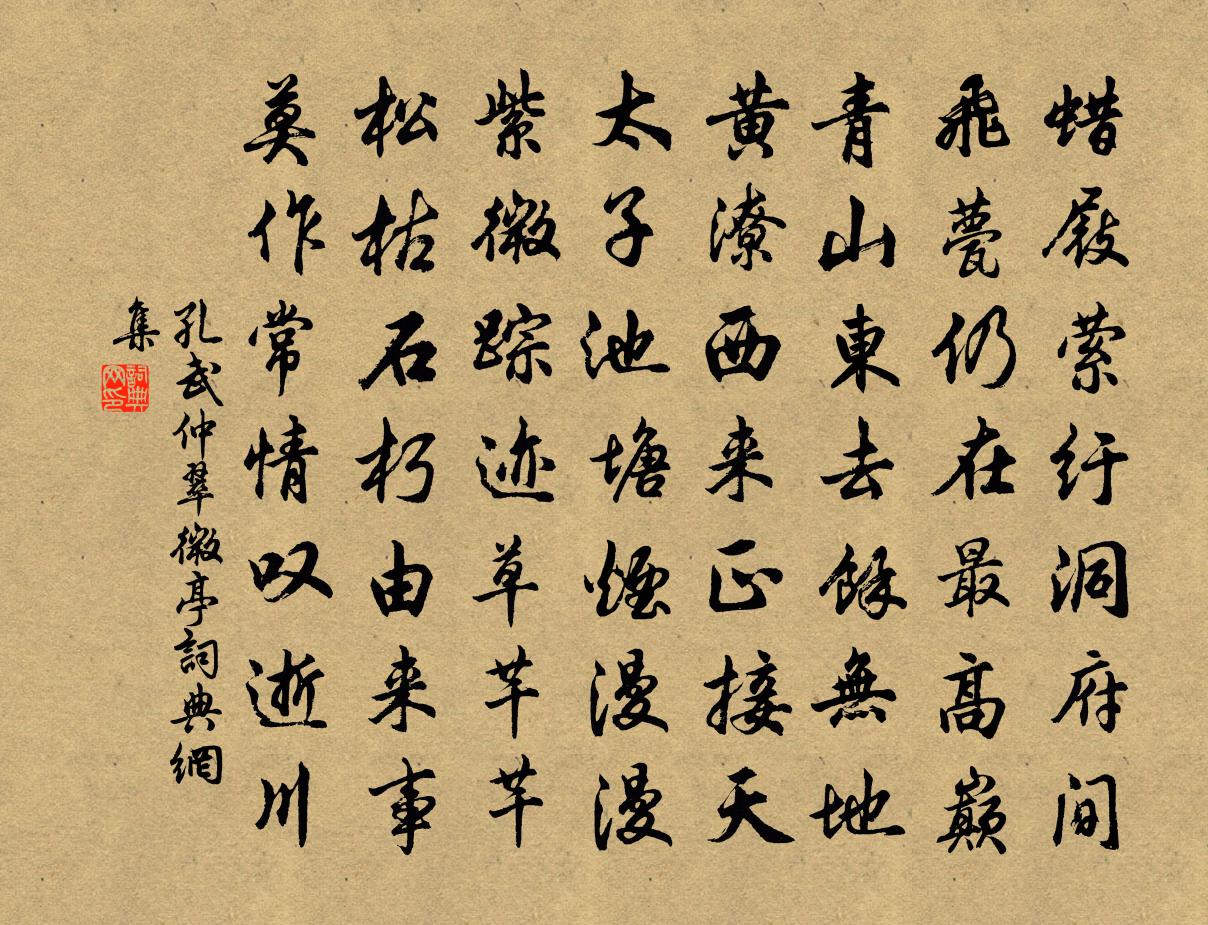 蜡屐萦纡洞府间
飛甍仍在最高巔
青山東去餘無地
黄潦西来正接天
太子池塘煙漫漫
紫微踪迹草芊芊
松枯石朽由来事
莫作常情叹逝川
孔武仲翠微亭詞典網
集
詞典网印